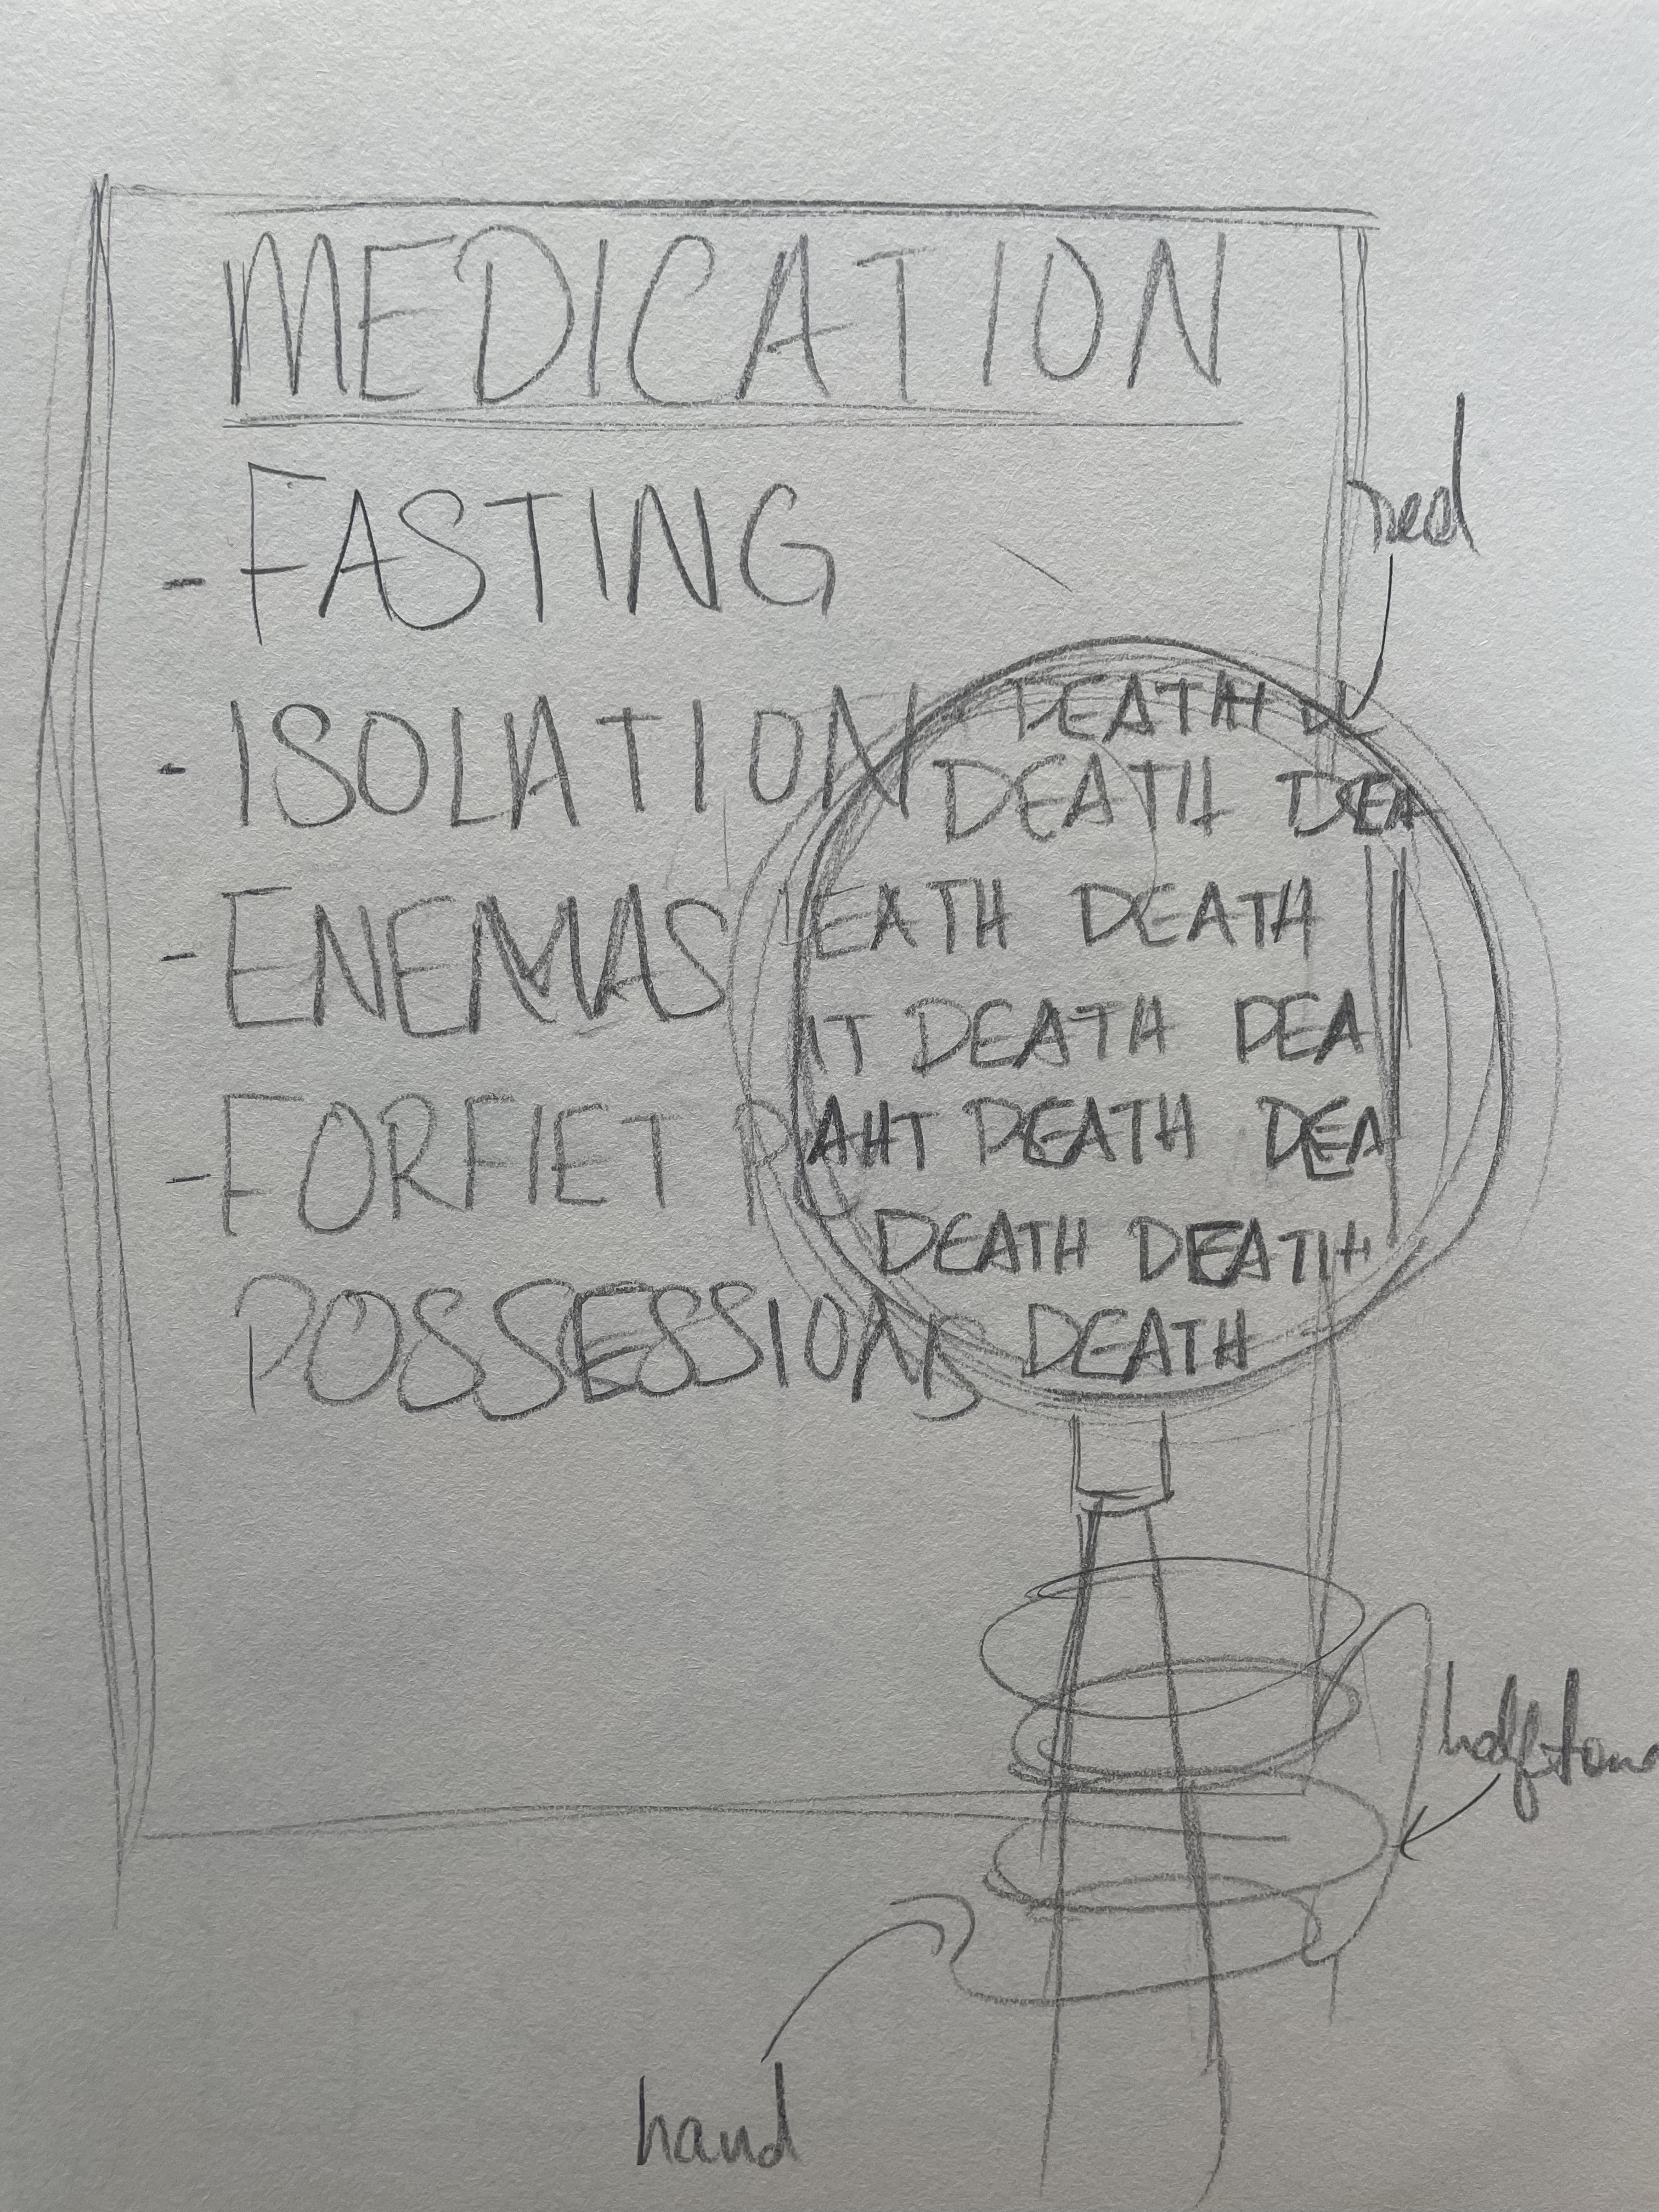 MEDICATION
- FASTING
- ISOLATION
- ENEMAS
- FORFIET
POSSESSIONS
DEATH D
DEATH DEA
EATH DEATH
HT DEATH DEA
AHT DEATH DEA
DEATH DEATH
DEATH
red
halftone
hand